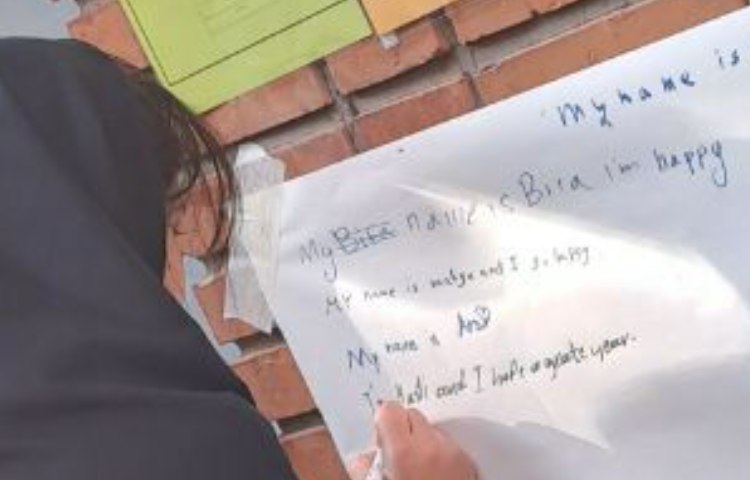 My name is
My Bita name is Bita i'm happy
My name is and I so happy
My name is
and I hope a great year.